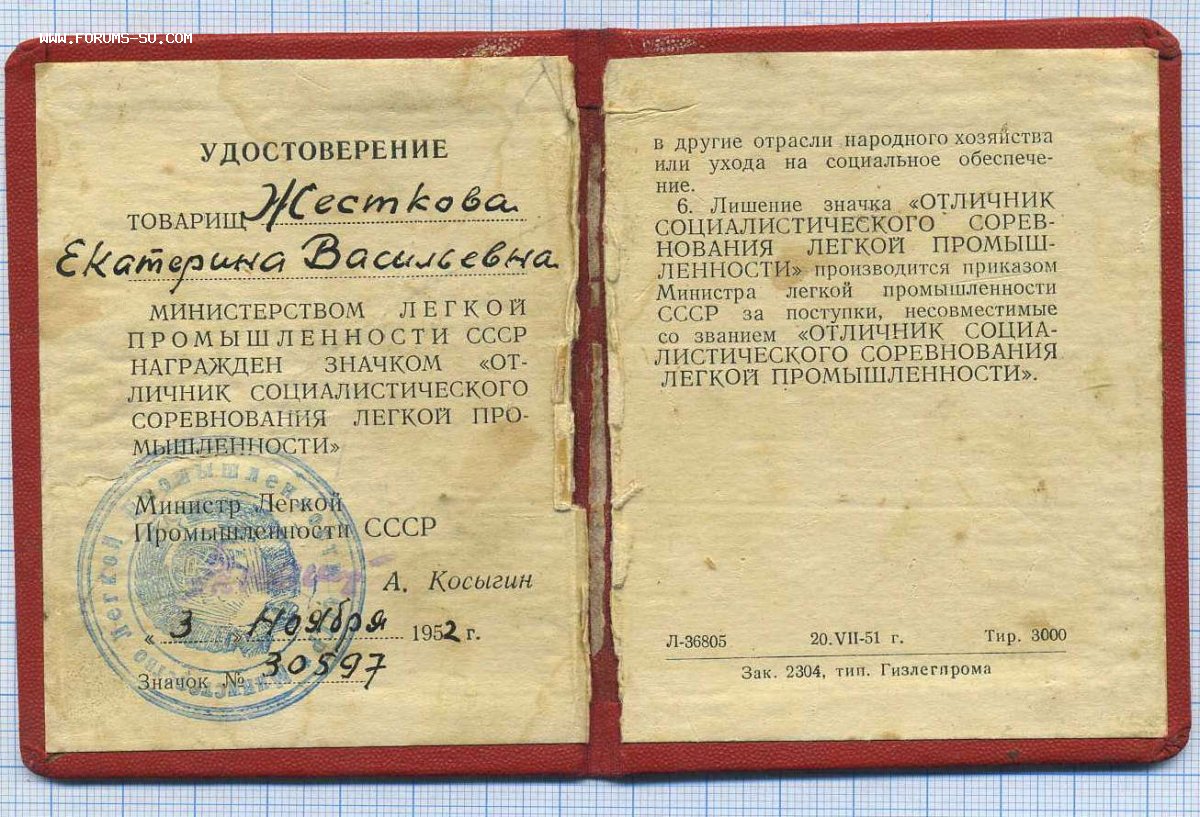 www.forums-su.com
УДОСТОВЕРЕНИЕ
ТОВАРИЩ Жесткова
Екатерина Васильевна
МИНИСТЕРСТВОМ ЛЕГКОЙ
ПРОМЫШЛЕННОСТИ СССР
НАГРАЖДЕН ЗНАЧКОМ «ОТ-
ЛИЧНИК СОЦИАЛИСТИЧЕСКОГО
СОРЕВНОВАНИЯ ЛЕГКОЙ ПРО-
МЫШЛЕННОСТИ»
Министр Легкой
Промышленности СССР
А. Косыгин
« 3 » Ноября 1952 г.
Значок № 30597
Министерство Легкой Промышленности
в другие отрасли народного хозяйства
или ухода на социальное обеспече-
ние.
6. Лишение значка «ОТЛИЧНИК
СОЦИАЛИСТИЧЕСКОГО СОРЕВ-
НОВАНИЯ ЛЕГКОЙ ПРОМЫШ-
ЛЕННОСТИ» производится приказом
Министра легкой промышленности
СССР за поступки, несовместимые
со званием «ОТЛИЧНИК СОЦИА-
ЛИСТИЧЕСКОГО СОРЕВНОВАНИЯ
ЛЕГКОЙ ПРОМЫШЛЕННОСТИ».
Л-36805 20.VII-51 г. Тир. 3000
Зак. 2304, тип. Гизлегпрома